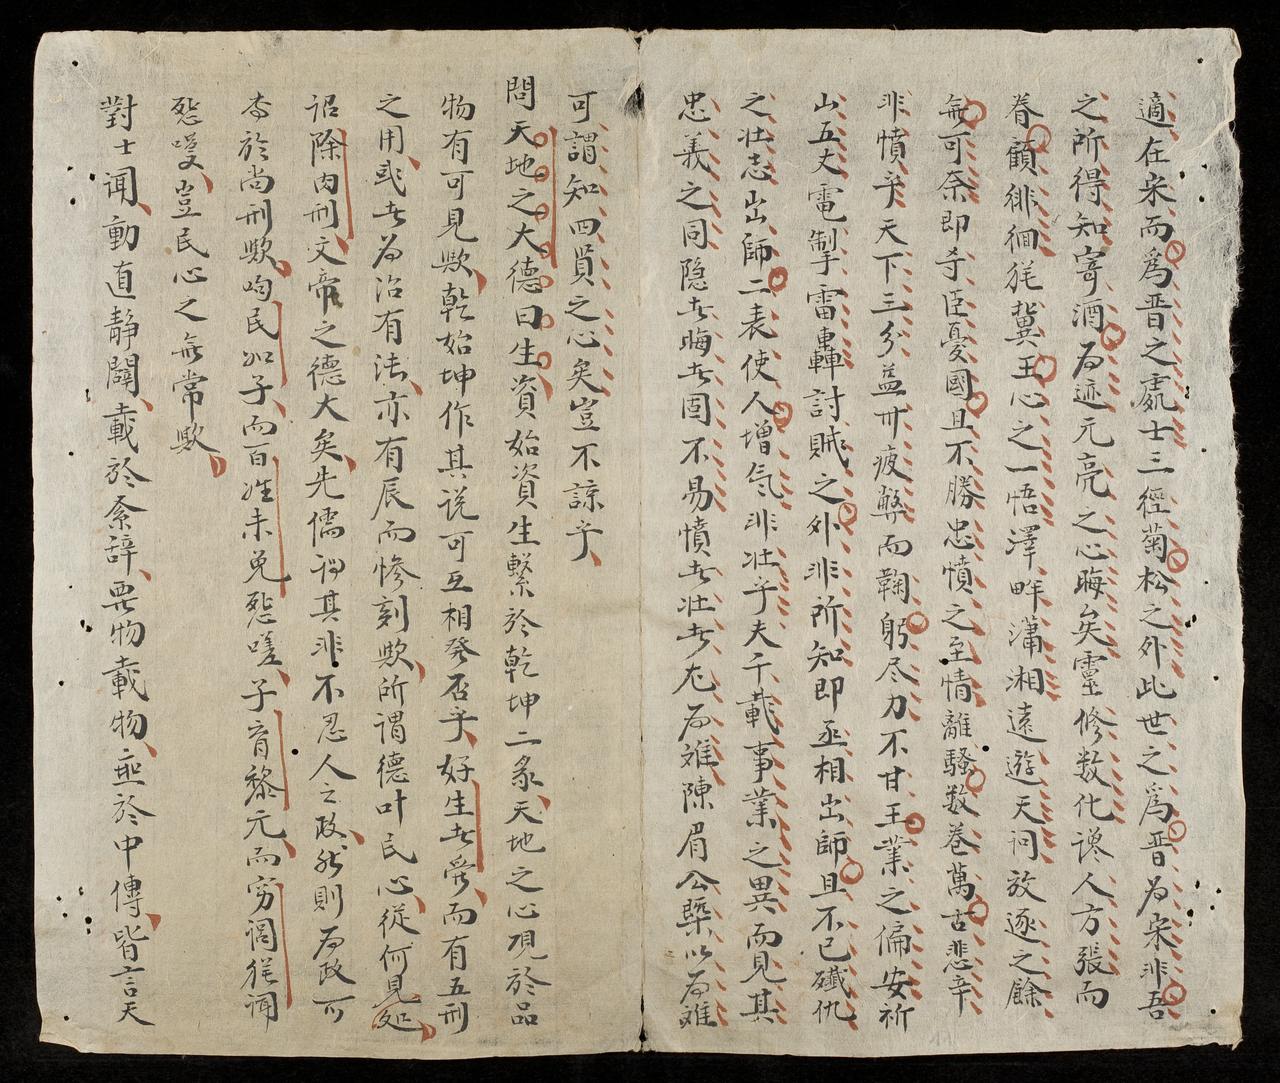 適在宋而爲晋之處士三徑菊松之外此世之爲晋为宋非吾
之所得知寄酒为迹元亮之心晦矣靈修数化谗人方張而
眷顧徘徊猶冀王心之一悟澤畔瀟湘遠遊天问放逐之餘
無可奈即孝臣憂國且不勝忠憤之至情離騷数卷萬古悲辛
非憤乎天下三分益州疲弊而鞠躬尽力不甘王業之偏安祈
山五丈電掣雷轟討賊之外非所知即丞相出師且不已殲仇
之壮志出師二表使人增氣非壮乎夫千載事業之異而見其
忠義之同隐者晦者固不易憤者壮者尤为难陳眉公槩以为难
可謂知四賢之心矣豈不諒乎
問天地之大德曰生資始資生繫於乾坤二彖天地之心現於品
物有可見歟乾始坤作其说可互相発否乎好生者爱而有五刑
之用或者为治有法亦有辰而惨刻歟所謂德叶民心従何見処
詔除肉刑文帝之德大矣先儒謂其非不忍人之政然則为政可
专於尚刑歟呴民如子而百姓未免愁嘆子育黎元而穷阎犹闻
愁嘆豈民心之無常歟
對士闻動直静闢載於系辞要物載物垂於中傳皆言天